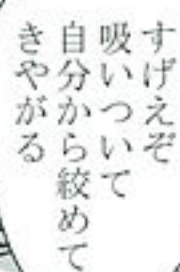 すげえぞ
吸いついて
自分から絞めて
きやがる